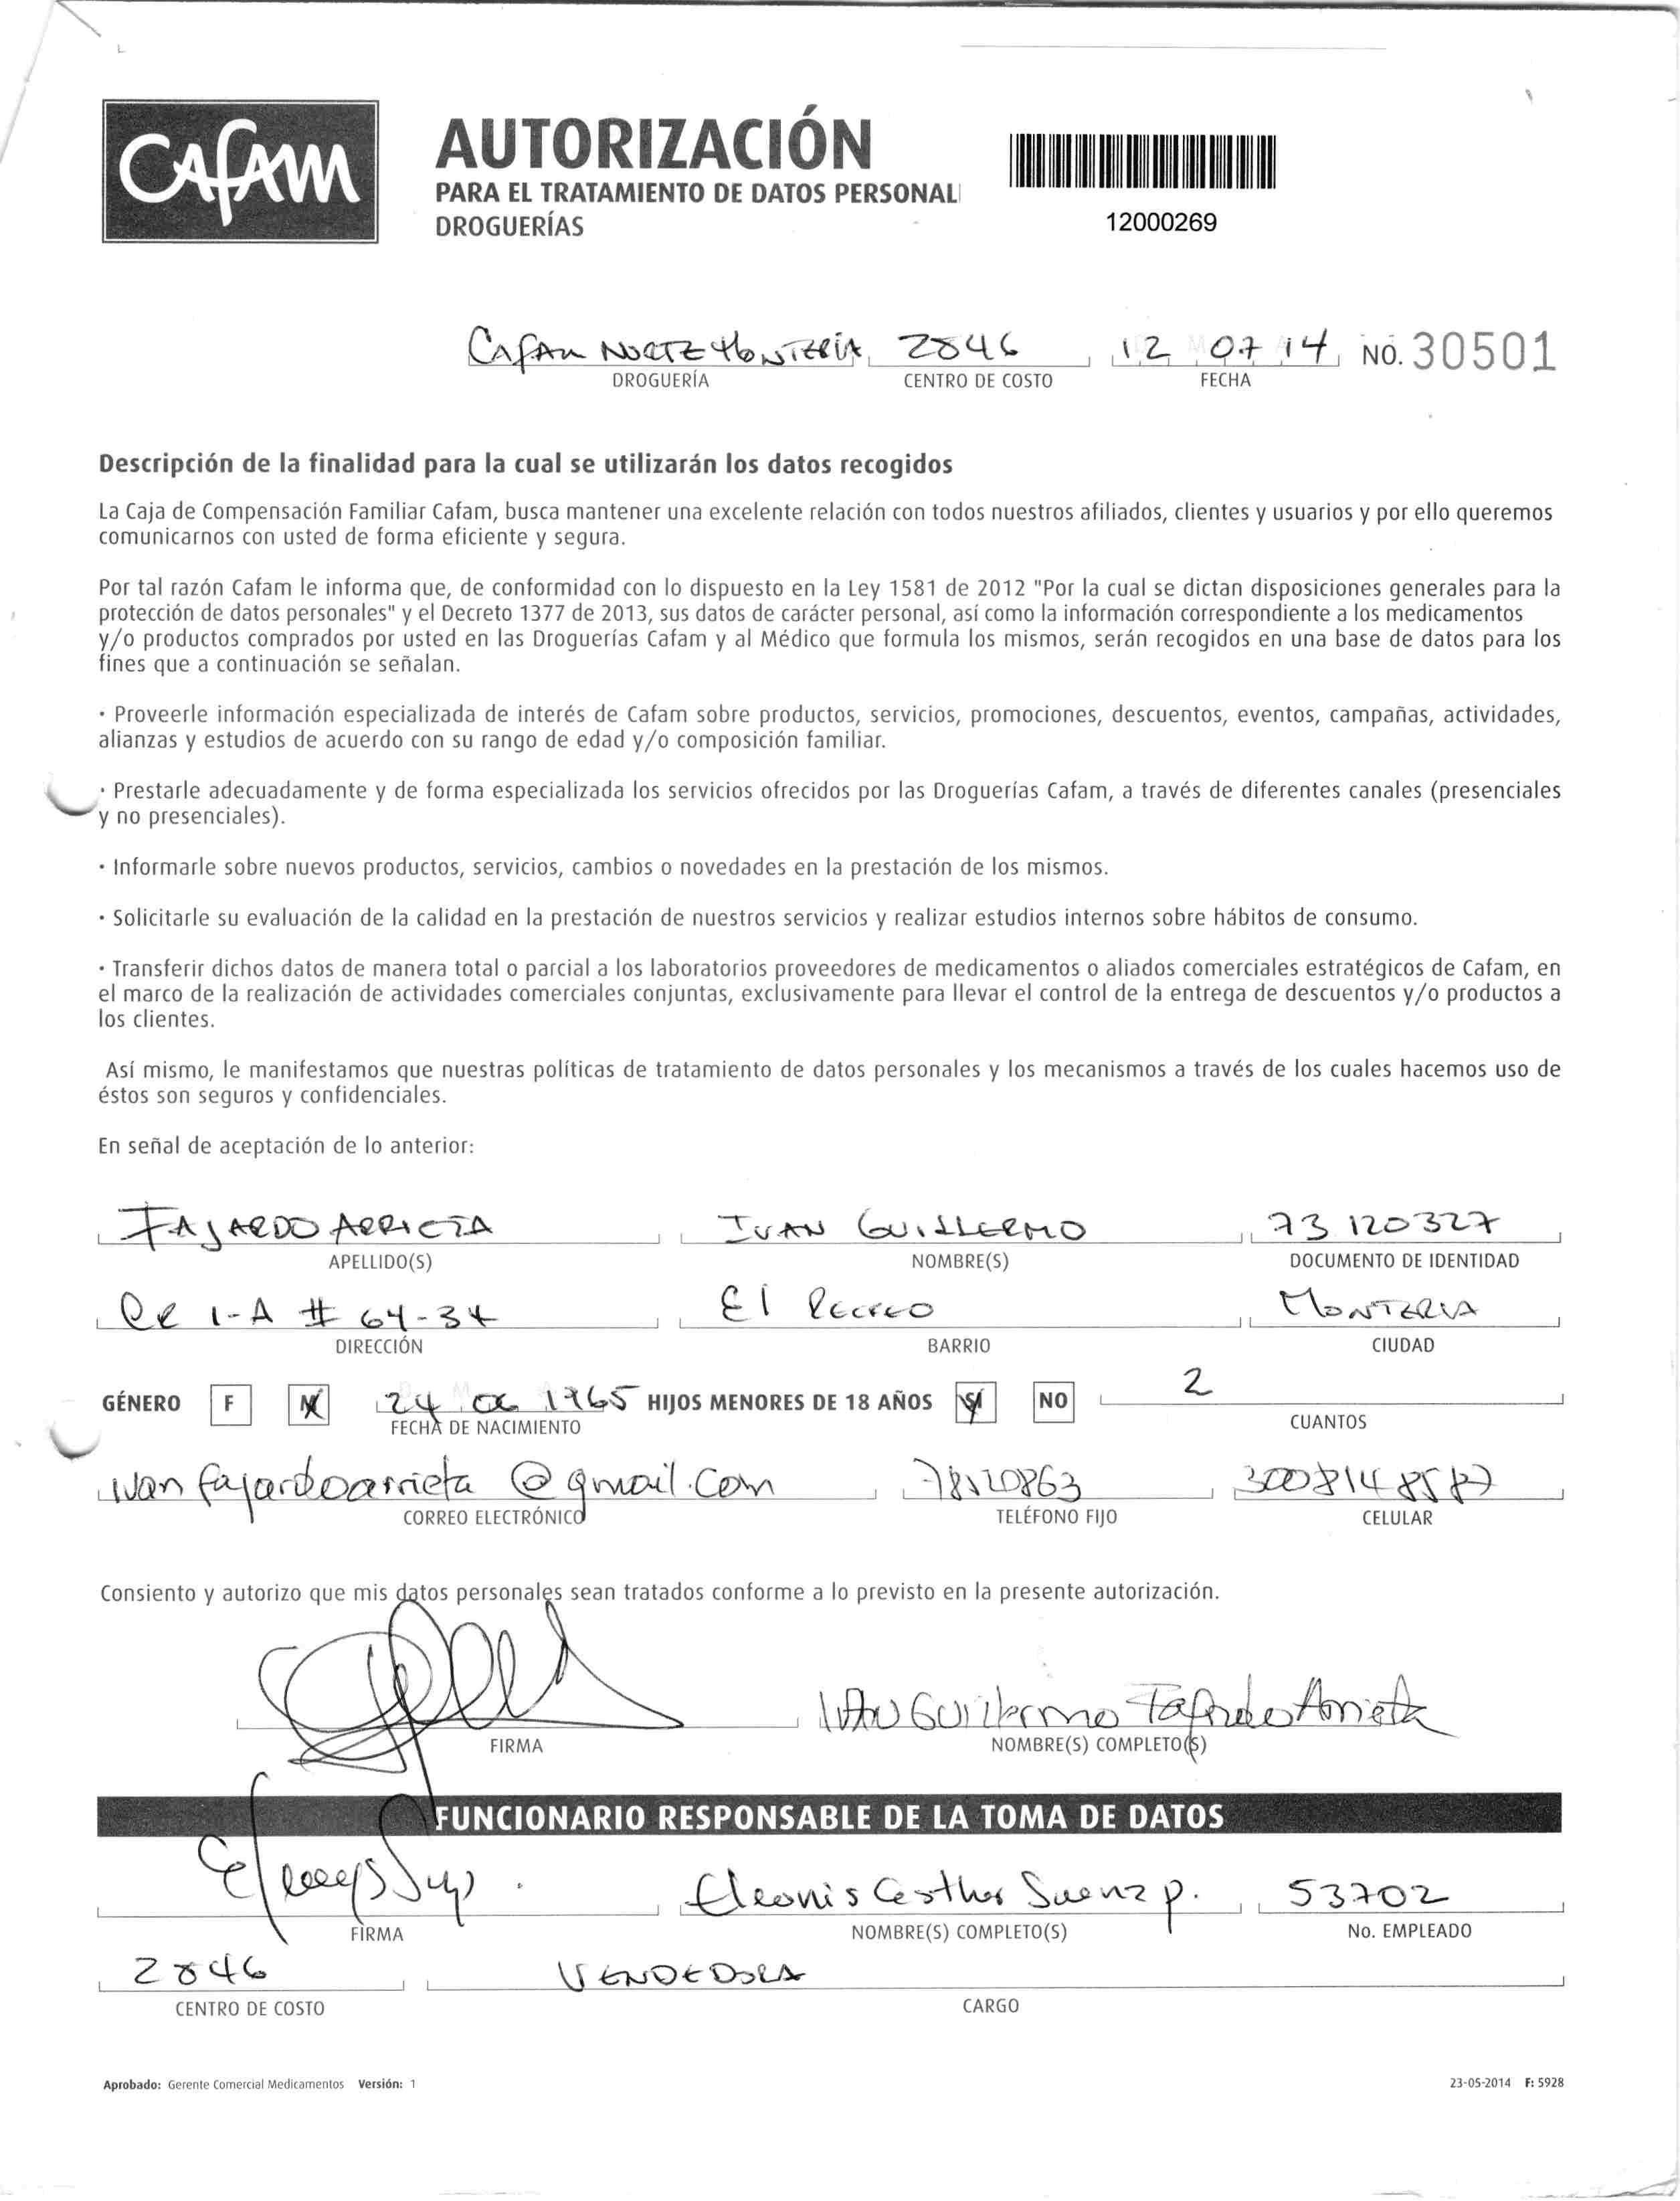 Cafam
AUTORIZACIÓN
PARA EL TRATAMIENTO DE DATOS PERSONAL
DROGUERÍAS
12000269
CAFAM NORTE MONTERIA 2846 12 07 14 NO. 30501
DROGUERÍA CENTRO DE COSTO FECHA
Descripción de la finalidad para la cual se utilizarán los datos recogidos
La Caja de Compensación Familiar Cafam, busca mantener una excelente relación con todos nuestros afiliados, clientes y usuarios y por ello queremos
comunicarnos con usted de forma eficiente y segura.
Por tal razón Cafam le informa que, de conformidad con lo dispuesto en la Ley 1581 de 2012 "Por la cual se dictan disposiciones generales para la
protección de datos personales" y el Decreto 1377 de 2013, sus datos de carácter personal, así como la información correspondiente a los medicamentos
y/o productos comprados por usted en las Droguerías Cafam y al Médico que formula los mismos, serán recogidos en una base de datos para los
fines que a continuación se señalan.
· Proveerle información especializada de interés de Cafam sobre productos, servicios, promociones, descuentos, eventos, campañas, actividades,
alianzas y estudios de acuerdo con su rango de edad y/o composición familiar.
· Prestarle adecuadamente y de forma especializada los servicios ofrecidos por las Droguerías Cafam, a través de diferentes canales (presenciales
y no presenciales).
· Informarle sobre nuevos productos, servicios, cambios o novedades en la prestación de los mismos.
· Solicitarle su evaluación de la calidad en la prestación de nuestros servicios y realizar estudios internos sobre hábitos de consumo.
· Transferir dichos datos de manera total o parcial a los laboratorios proveedores de medicamentos o aliados comerciales estratégicos de Cafam, en
el marco de la realización de actividades comerciales conjuntas, exclusivamente para llevar el control de la entrega de descuentos y/o productos a
los clientes.
Así mismo, le manifestamos que nuestras políticas de tratamiento de datos personales y los mecanismos a través de los cuales hacemos uso de
éstos son seguros y confidenciales.
En señal de aceptación de lo anterior:
FAJARDO ARRIETA IVAN GUILLERMO 73 120327
APELLIDO(S) NOMBRE(S) DOCUMENTO DE IDENTIDAD
CR 1-A # 64-34 El Recreo MONTERIA
DIRECCIÓN BARRIO CIUDAD
GÉNERO F M 24 06 1965 HIJOS MENORES DE 18 AÑOS SÍ NO 2
FECHA DE NACIMIENTO CUANTOS
ivanfajardoarrieta @ gmail.com 78510863 3008148587
CORREO ELECTRÓNICO TELÉFONO FIJO CELULAR
Consiento y autorizo que mis datos personales sean tratados conforme a lo previsto en la presente autorización.
IVAN Guillermo Fajardo Arrieta
FIRMA NOMBRE(S) COMPLETO(S)
FUNCIONARIO RESPONSABLE DE LA TOMA DE DATOS
Eleonis Cesther Saenz p. 53702
FIRMA NOMBRE(S) COMPLETO(S) No. EMPLEADO
2846 VENDEDORA
CENTRO DE COSTO CARGO
Aprobado: Gerente Comercial Medicamentos Versión: 1 23-05-2014 F: 5928